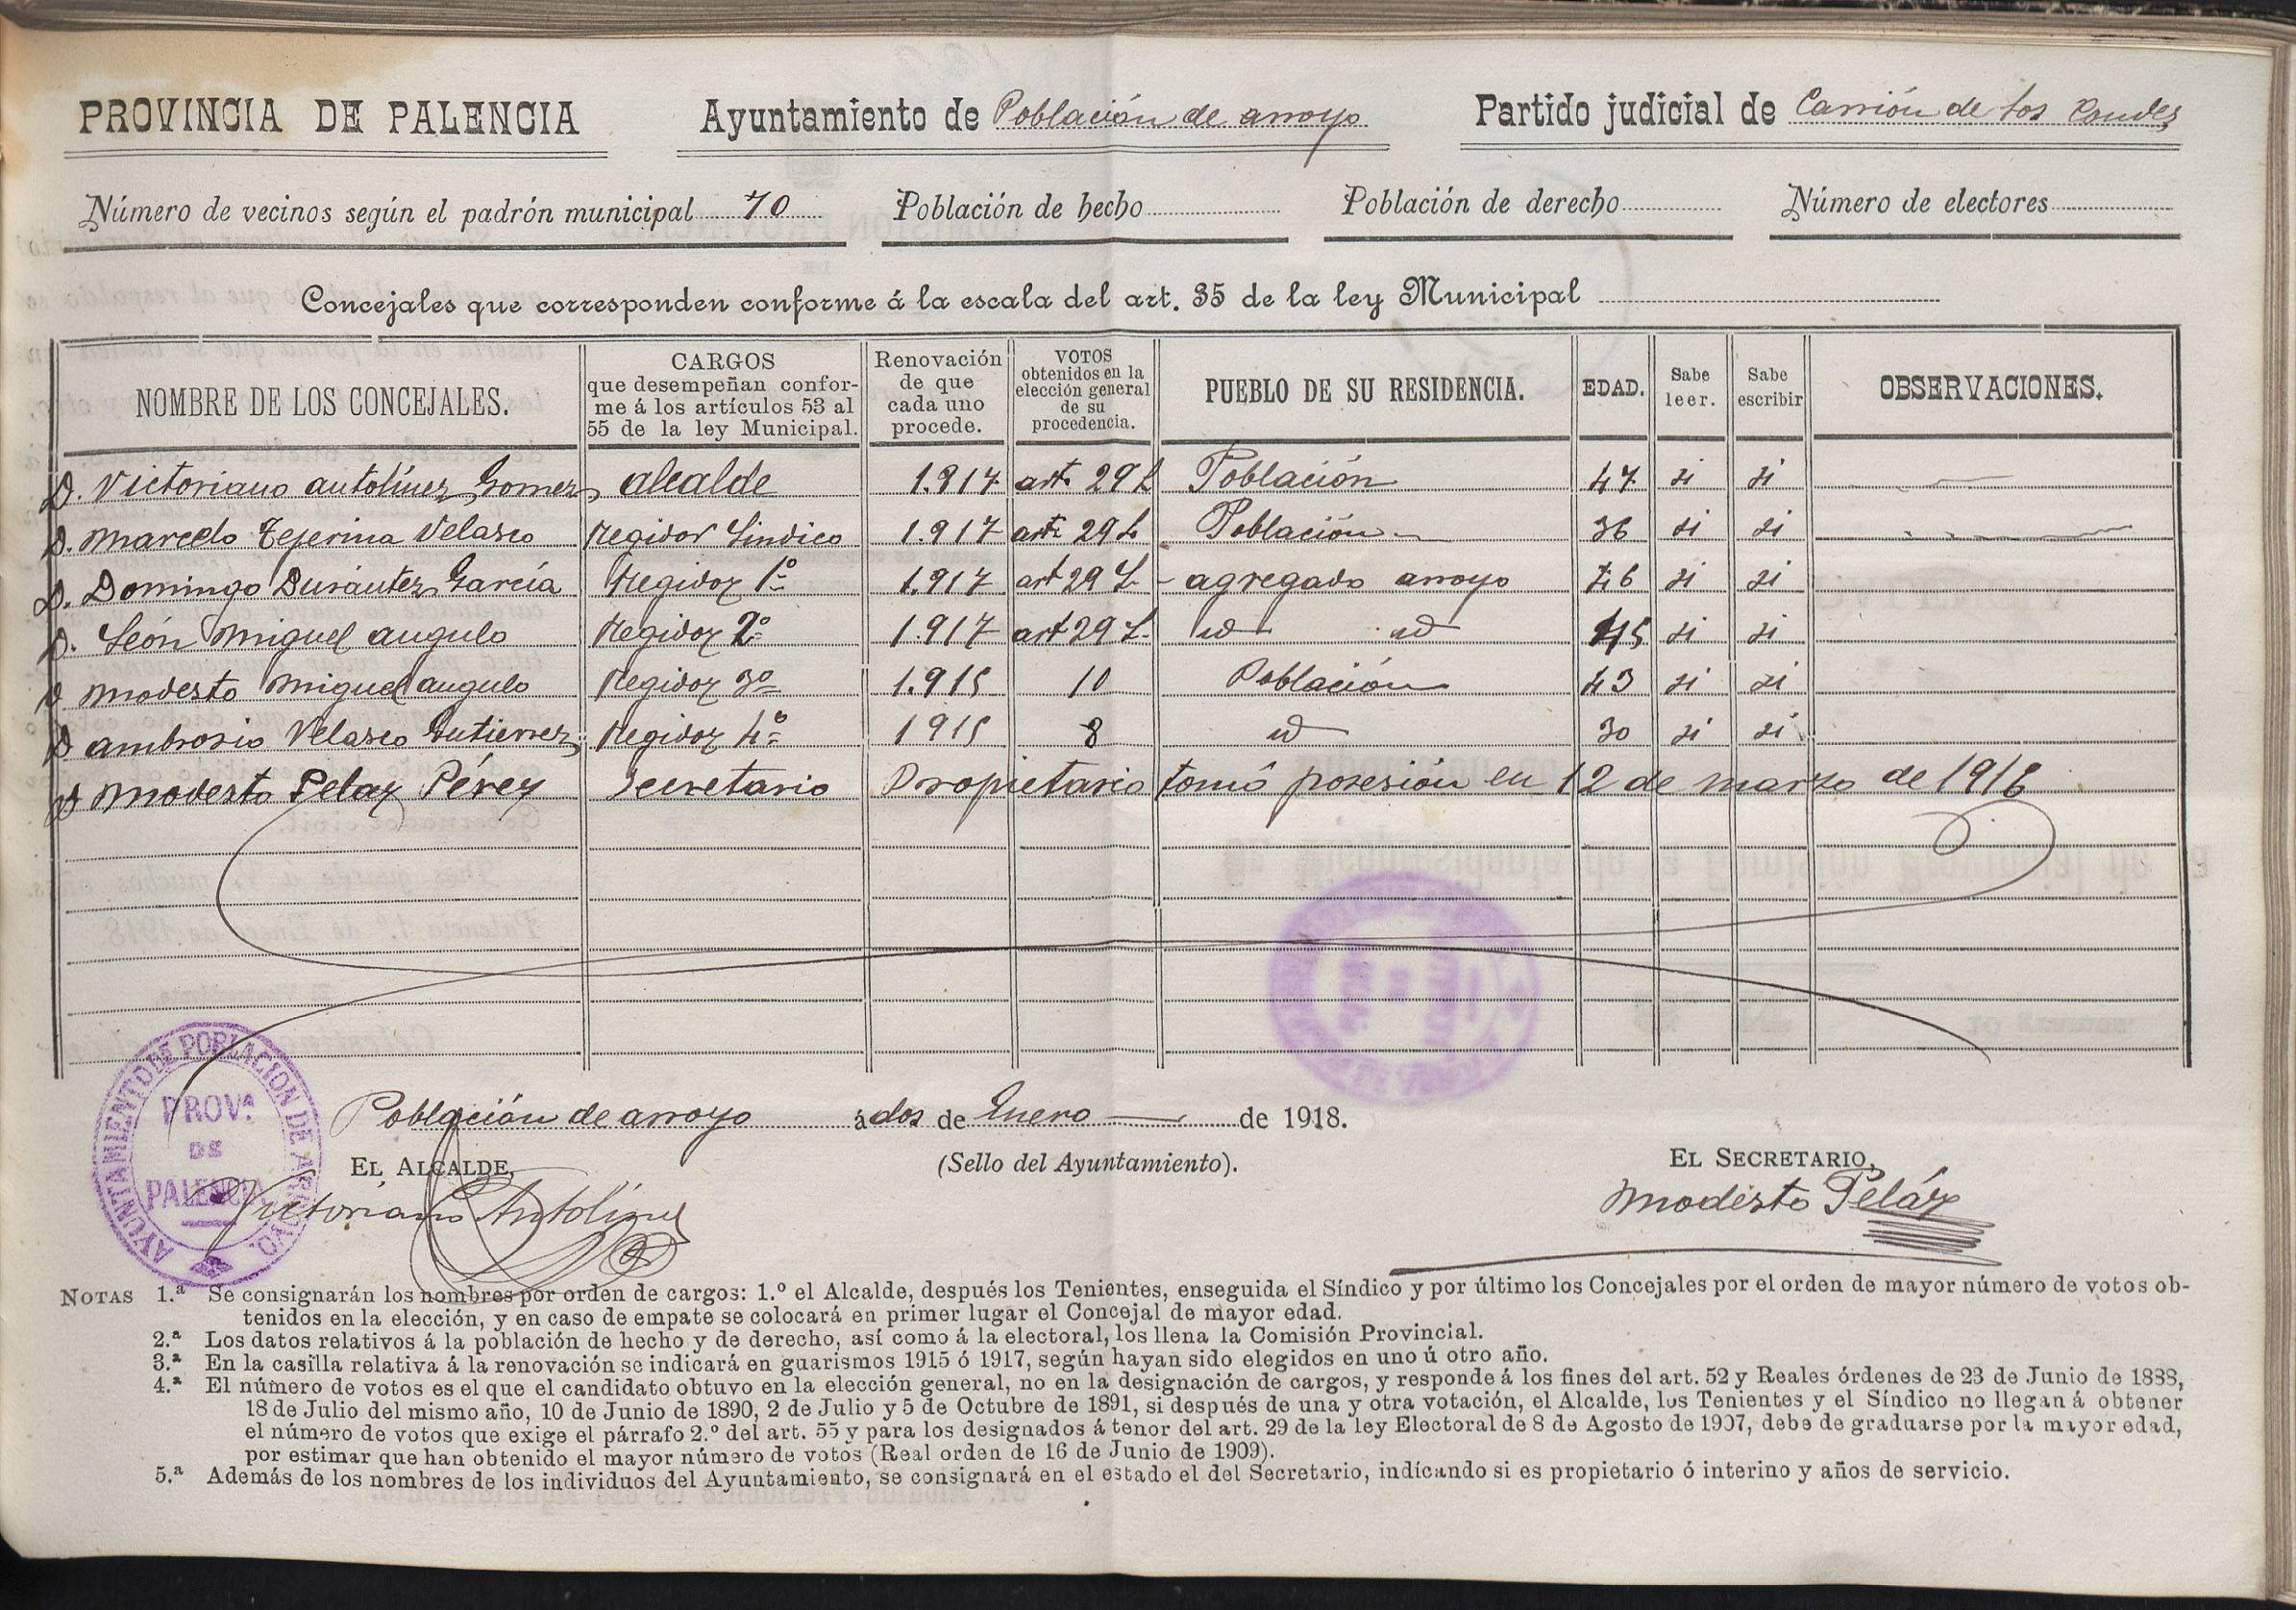 PROVINCIA DE PALENCIA Ayuntamiento de Población de arroyo Partido judicial de Carrión de los Condes
Número de vecinos según el padrón municipal 70 Población de hecho Población de derecho Número de electores
Concejales que corresponden conforme á la escala del art. 35 de la ley Municipal
NOMBRE DE LOS CONCEJALES. CARGOS que desempeñan confor- me á los artículos 53 al 55 de la ley Municipal. Renovación de que cada uno procede. VOTOS obtenidos en la elección general de su procedencia. PUEBLO DE SU RESIDENCIA. EDAD. Sabe leer. Sabe escribir OBSERVACIONES.
D. Victoriano antolínez Gomez alcalde 1.917 art. 29 L Población 47 si si
D. Marcelo Tejerina Velasco Regidor Sindico 1.917 art. 29 L Población 36 si si
D. Domingo Durántez García Regidor 1º 1.917 art 29 L agregado arroyo 46 si si
D. León Miguel angulo Regidor 2º 1917 art 29 L id id 45 si si
D Modesto Miguel angulo Regidor 3º 1.915 10 Población 43 si si
D ambrosio Velasco Gutierrez Regidor 4º 1915 8 id 30 si si
D Modesto Pelaz Pérez Secretario Propietario tomó posesión en 12 de marzo de 1916
AYUNTAMIENTO DE POBLACION DE ARROYO.
PROVª
DE
PALENCIA
Población de arroyo á dos de Enero de 1918.
EL ALCALDE, (Sello del Ayuntamiento). EL SECRETARIO,
Victoriano Antolínez Modesto Peláz
NOTAS 1.ª Se consignarán los nombres por orden de cargos: 1.º el Alcalde, después los Tenientes, enseguida el Síndico y por último los Concejales por el orden de mayor número de votos ob-
tenidos en la elección, y en caso de empate se colocará en primer lugar el Concejal de mayor edad.
2.ª Los datos relativos á la población de hecho y de derecho, así como á la electoral, los llena la Comisión Provincial.
3.ª En la casilla relativa á la renovación se indicará en guarismos 1915 ó 1917, según hayan sido elegidos en uno ú otro año.
4.ª El número de votos es el que el candidato obtuvo en la elección general, no en la designación de cargos, y responde á los fines del art. 52 y Reales órdenes de 23 de Junio de 1888,
18 de Julio del mismo año, 10 de Junio de 1890, 2 de Julio y 5 de Octubre de 1891, si después de una y otra votación, el Alcalde, los Tenientes y el Síndico no llegan á obtener
el número de votos que exige el párrafo 2.º del art. 55 y para los designados á tenor del art. 29 de la ley Electoral de 8 de Agosto de 1907, debe de graduarse por la mayor edad,
por estimar que han obtenido el mayor número de votos (Real orden de 16 de Junio de 1909).
5.ª Además de los nombres de los individuos del Ayuntamiento, se consignará en el estado el del Secretario, indicando si es propietario ó interino y años de servicio.